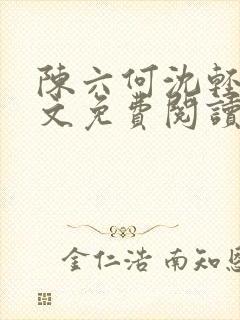 陳六何沈輕
文免費閱讀
金仁浩 南知恩